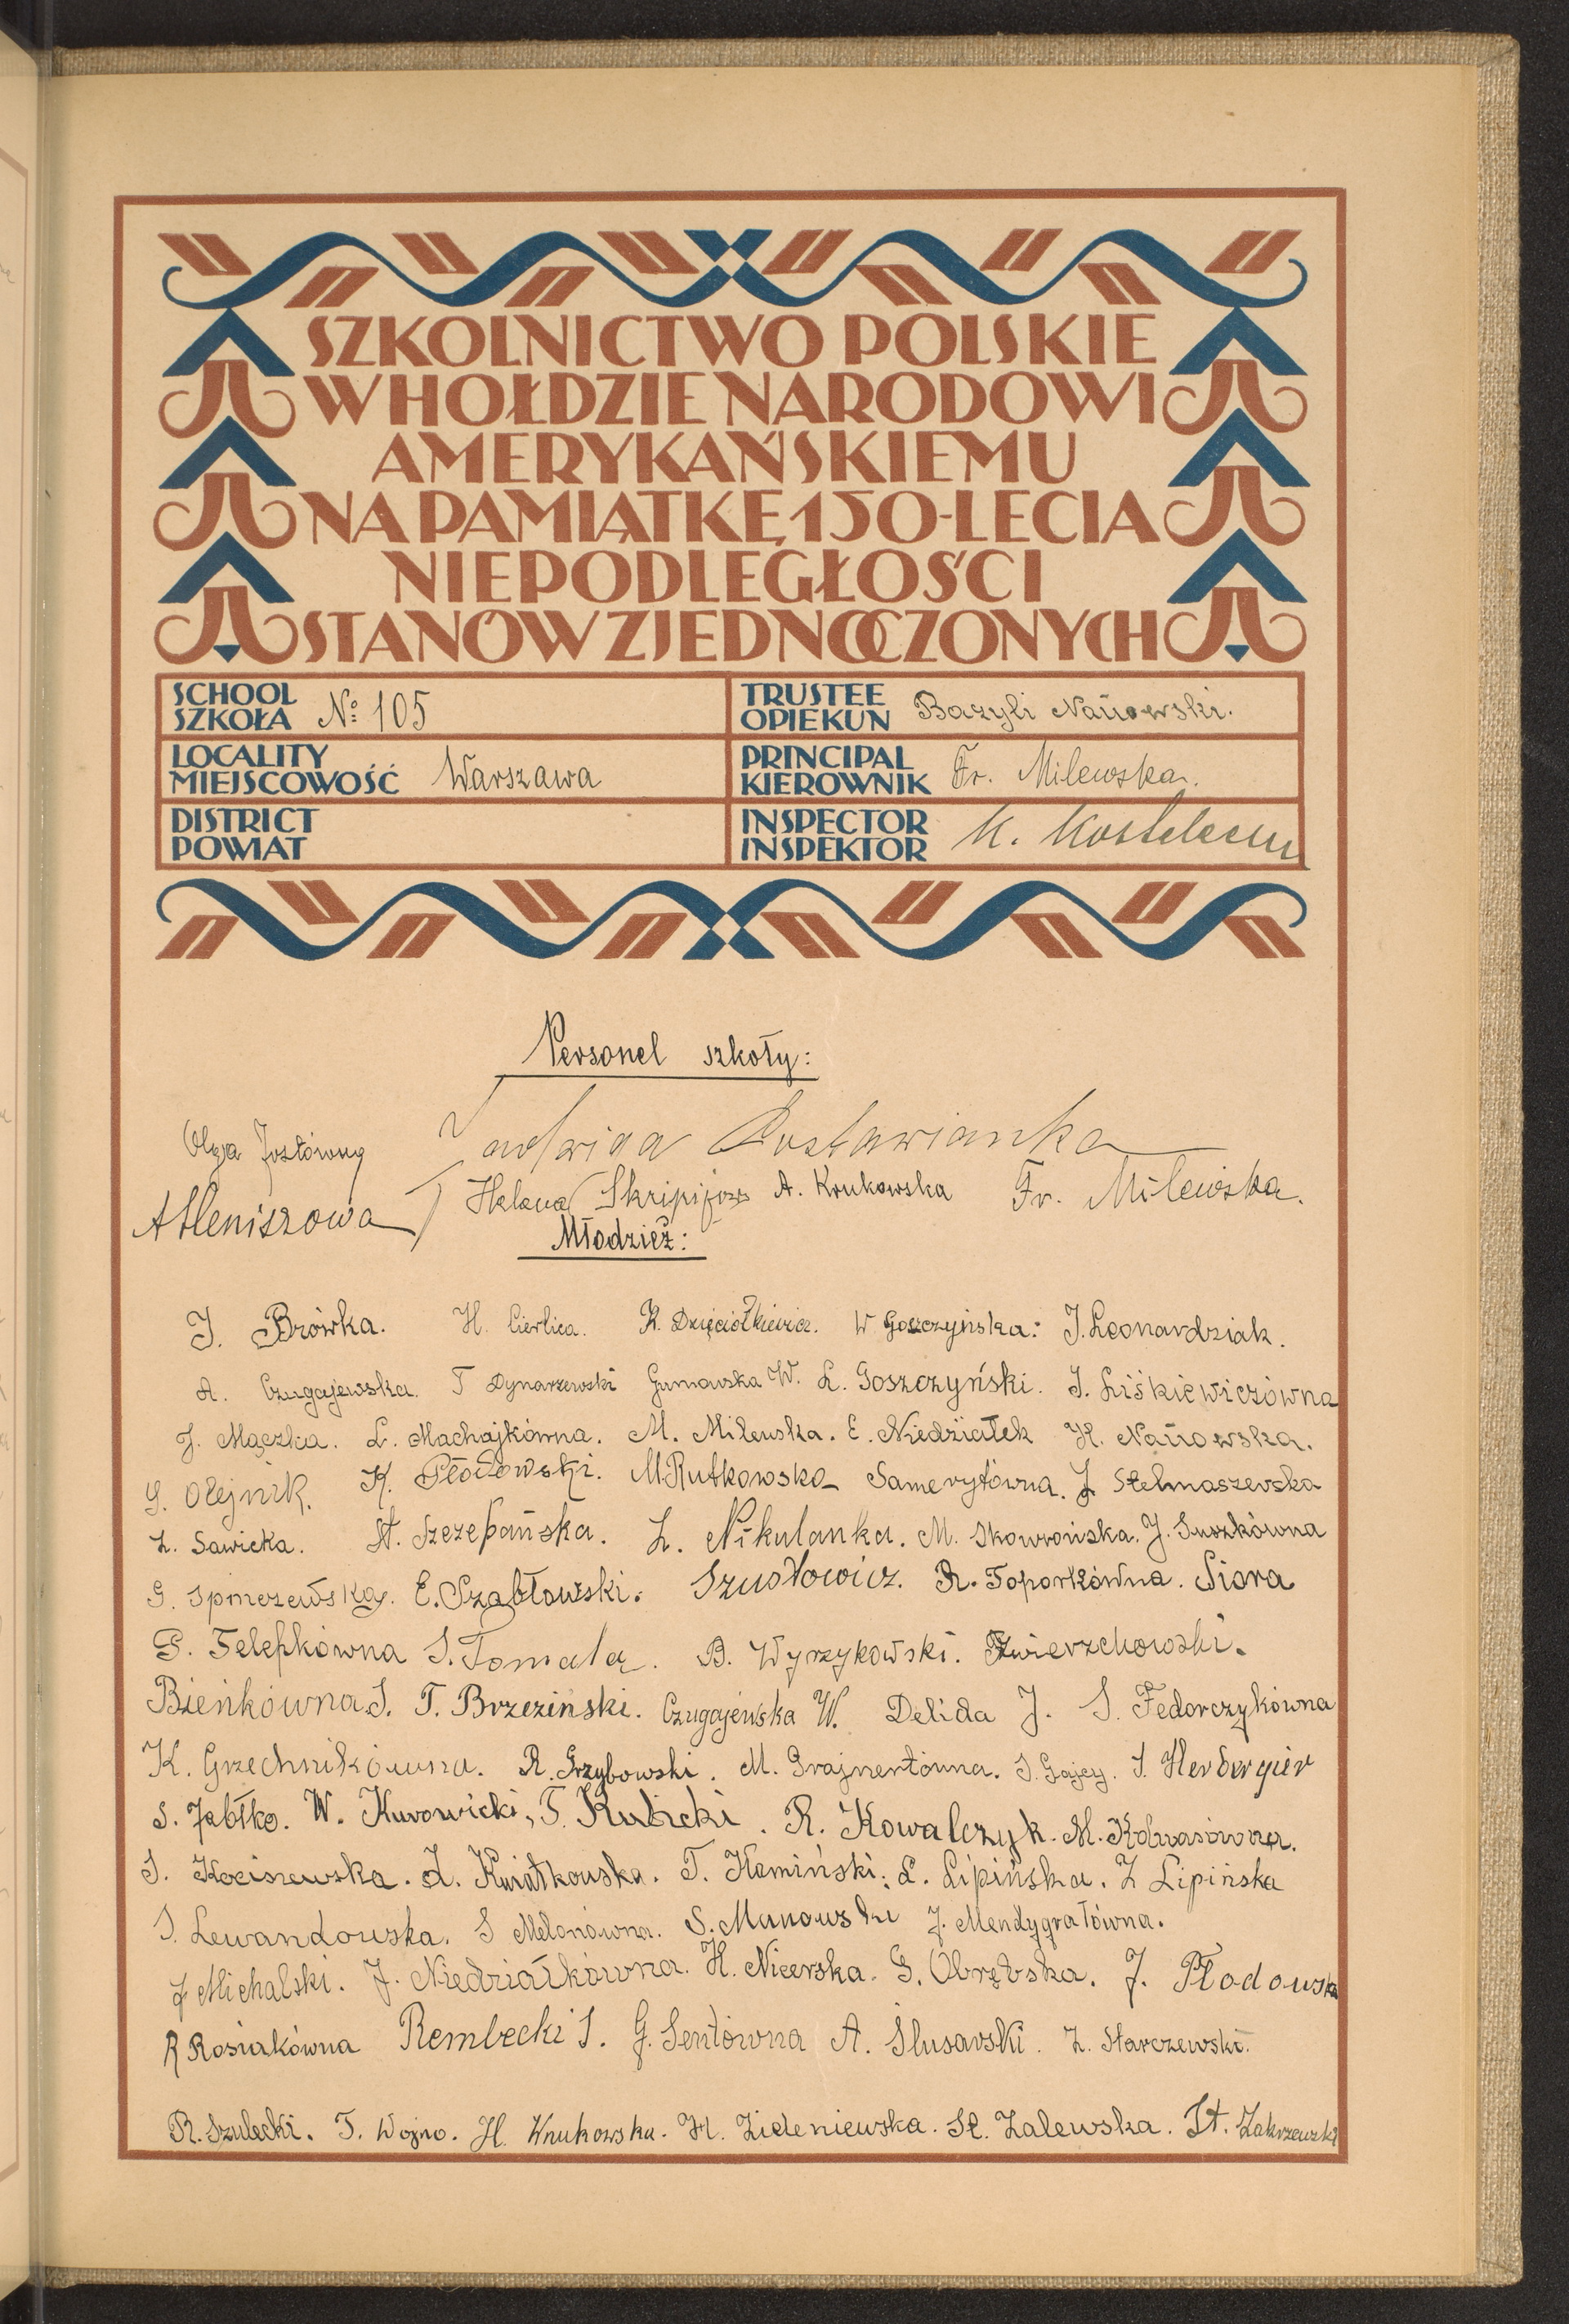 SZKOLNICTWO POLSKIE
W HOŁDZIE NARODOWI
AMERYKAŃSKIEMU
NA PAMIĄTKĘ 150-LECIA
NIEPODLEGŁOŚCI
STANÓW ZJEDNOCZONYCH
SCHOOL
SZKOŁA № 105
TRUSTEE
OPIEKUN Bazyli Naurowski.
LOCALITY
MIEJSCOWOŚĆ Warszawa
PRINCIPAL
KIEROWNIK Fr. Milewska.
DISTRICT
POWIAT
INSPECTOR
INSPEKTOR K.
Personel szkoły:
Olga Jadwiga
Helena A. Krukowska Fr. Milewska.
Młodzież:
J. Brówka. H. Cierlica. K. Dzięciołkiewicz. W Goszczyńska: J. Leonardziak.
A. Czugajewska. T Dynarzewski Gumowska W. L. Goszczyński. J. Liśkiewiczówna
J. Mączka. L. Machajkówna. M. Milewska. E. Niedziałek H.
S. Olejnik. K. Płodowski. M Rutkowska Samerytówna. J Stelmaszewska
Z. Sawicka. St. Szczepańska. Z. Nikulanka. M. Skowrońska. J. Suszkówna
E. Szabłowski. Szusłowicz. R. Toporkówna. Siora
G. Telepkówna S. Tomala. B. Wyrzykowski. Zwierzchowski.
Bieńkówna S. T. Brzeziński. Czugajewska W. Delida J. S. Fedorczykówna
K. Grzechnikówna. R. Grzybowski. M. Grajnertówna. S. Gajcy. S. Herbergier
S. Jabłko. W. Kurowicki, T. Kubicki. R. Kowalczyk. M.
S. Kociszewska. Z. Kwiatkowska. T. Kamiński. L. Lipińska. Z Lipińska
S. Lewandowska. S Melonówna. S. Manowski J. Mendygrałówna.
J Michalski. J. Niedziałkówna. H. Nicerska. G. Obrębska. J. Płodowska
R Rosiakówna Rembecki S. G. Sentówna A. Ślusarski. Z. Starczewski.
R. Szulecki. T. Wojno. H. Wnukowska. H. Zideniewska. St. Zalewska. St. Zakrzewski